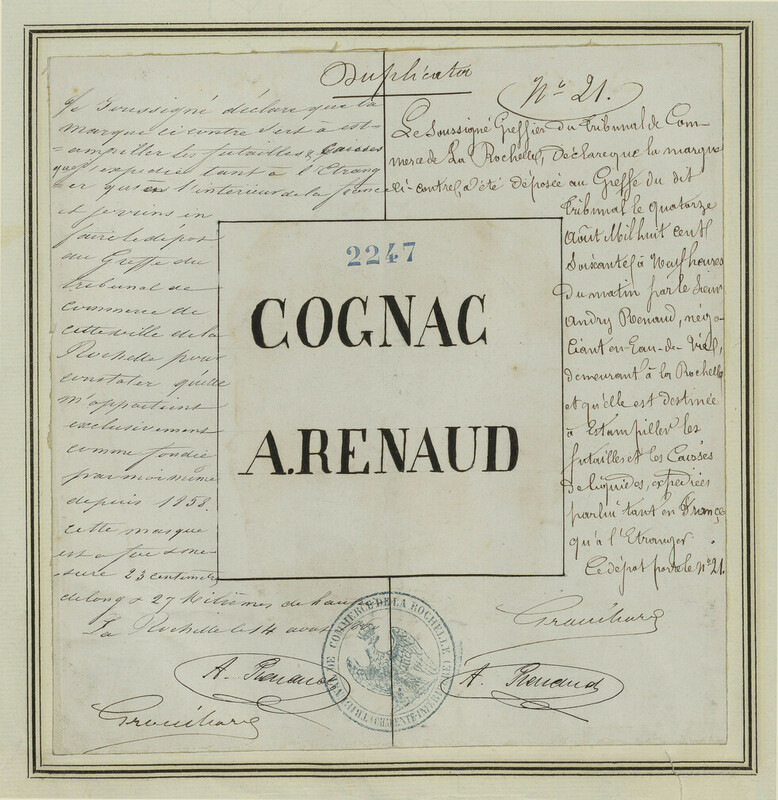 Duplicator
Je Soussigné déclare que la
marque ci contre sert à est-
=ampiller les futailles & Caisses
expedie tant à l'Etrang
er que l'intérieur de la france
et je viens en
faire le dépot
au Greffe du
tribunal de
Commerce de
cette ville de la
Rochelle pour
constater qu'elle
m'appartient
exclusivement
comme fondée
par moi même
depuis 1858.
cette marque
est a feu & me-
=sure 23 centimètres
de long & 27 de
La Rochelle le 14
A. Renaud
2247
COGNAC
A.RENAUD
No. 21.
Le Soussigné Greffier du tribunal de Com-
merce de La Rochelle, Déclare que la marque
ci-contre, a été déposée au Greffe du dit
tribunal le quatorze
Août Mil huit cent
Soixante, à Neuf heures
Du matin par le Sieur
Andry Renaud, négo-
ciant en Eau-de-Vie,
demeurant à la Rochelle
et qu'elle est destinée
à Estampiller les
futailles et les Caisses
de liquides, expédiées
par lui tant en France
qu'à l'Etranger.
Ce dépot porte le No. 21.
A. Renaud
DE COMMERCE DE LA ROCHELLE